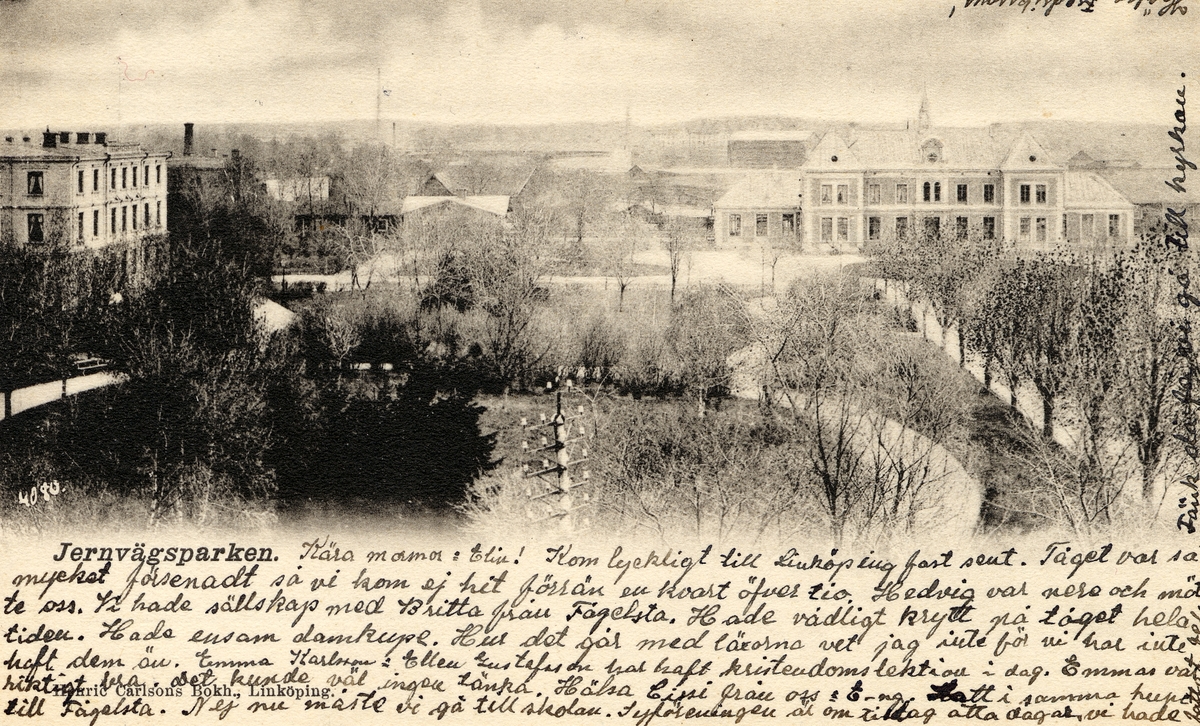 4080.
Jernvägsparken. Kära mormor = Elin! Kom lyckligt till Linköping fast sent. Tåget var så
mycket försenadt så vi kom ej hit förrän en kvart öfver tio. Hedvig var nere och möt
te oss. Vi hade sällskap med Britta från Fågelsta. Hade vådligt krytt på tåget hela
tiden. Hade ensam damkupe. Hur det går med läxorna vet jag inte för vi har inte
haft dem än. Emma Karlsson = Ellen Gustafsson har haft kristendomslektion i dag. Emmas var
riktigt bra. det kunde väl ingen tänka. Hälsa Cissi från oss = E-ng. i samma kupé
Carlsons Bokh., Linköping.
till Fågelsta. Nej nu måste vi gå till skolan. Syföreningen är om tisdag åtta dagar, vi hade
gå till kyrkan.